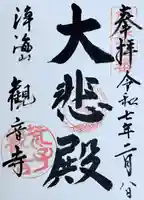 奉拝
令和七年二月八日
大悲殿
津海山
観音寺